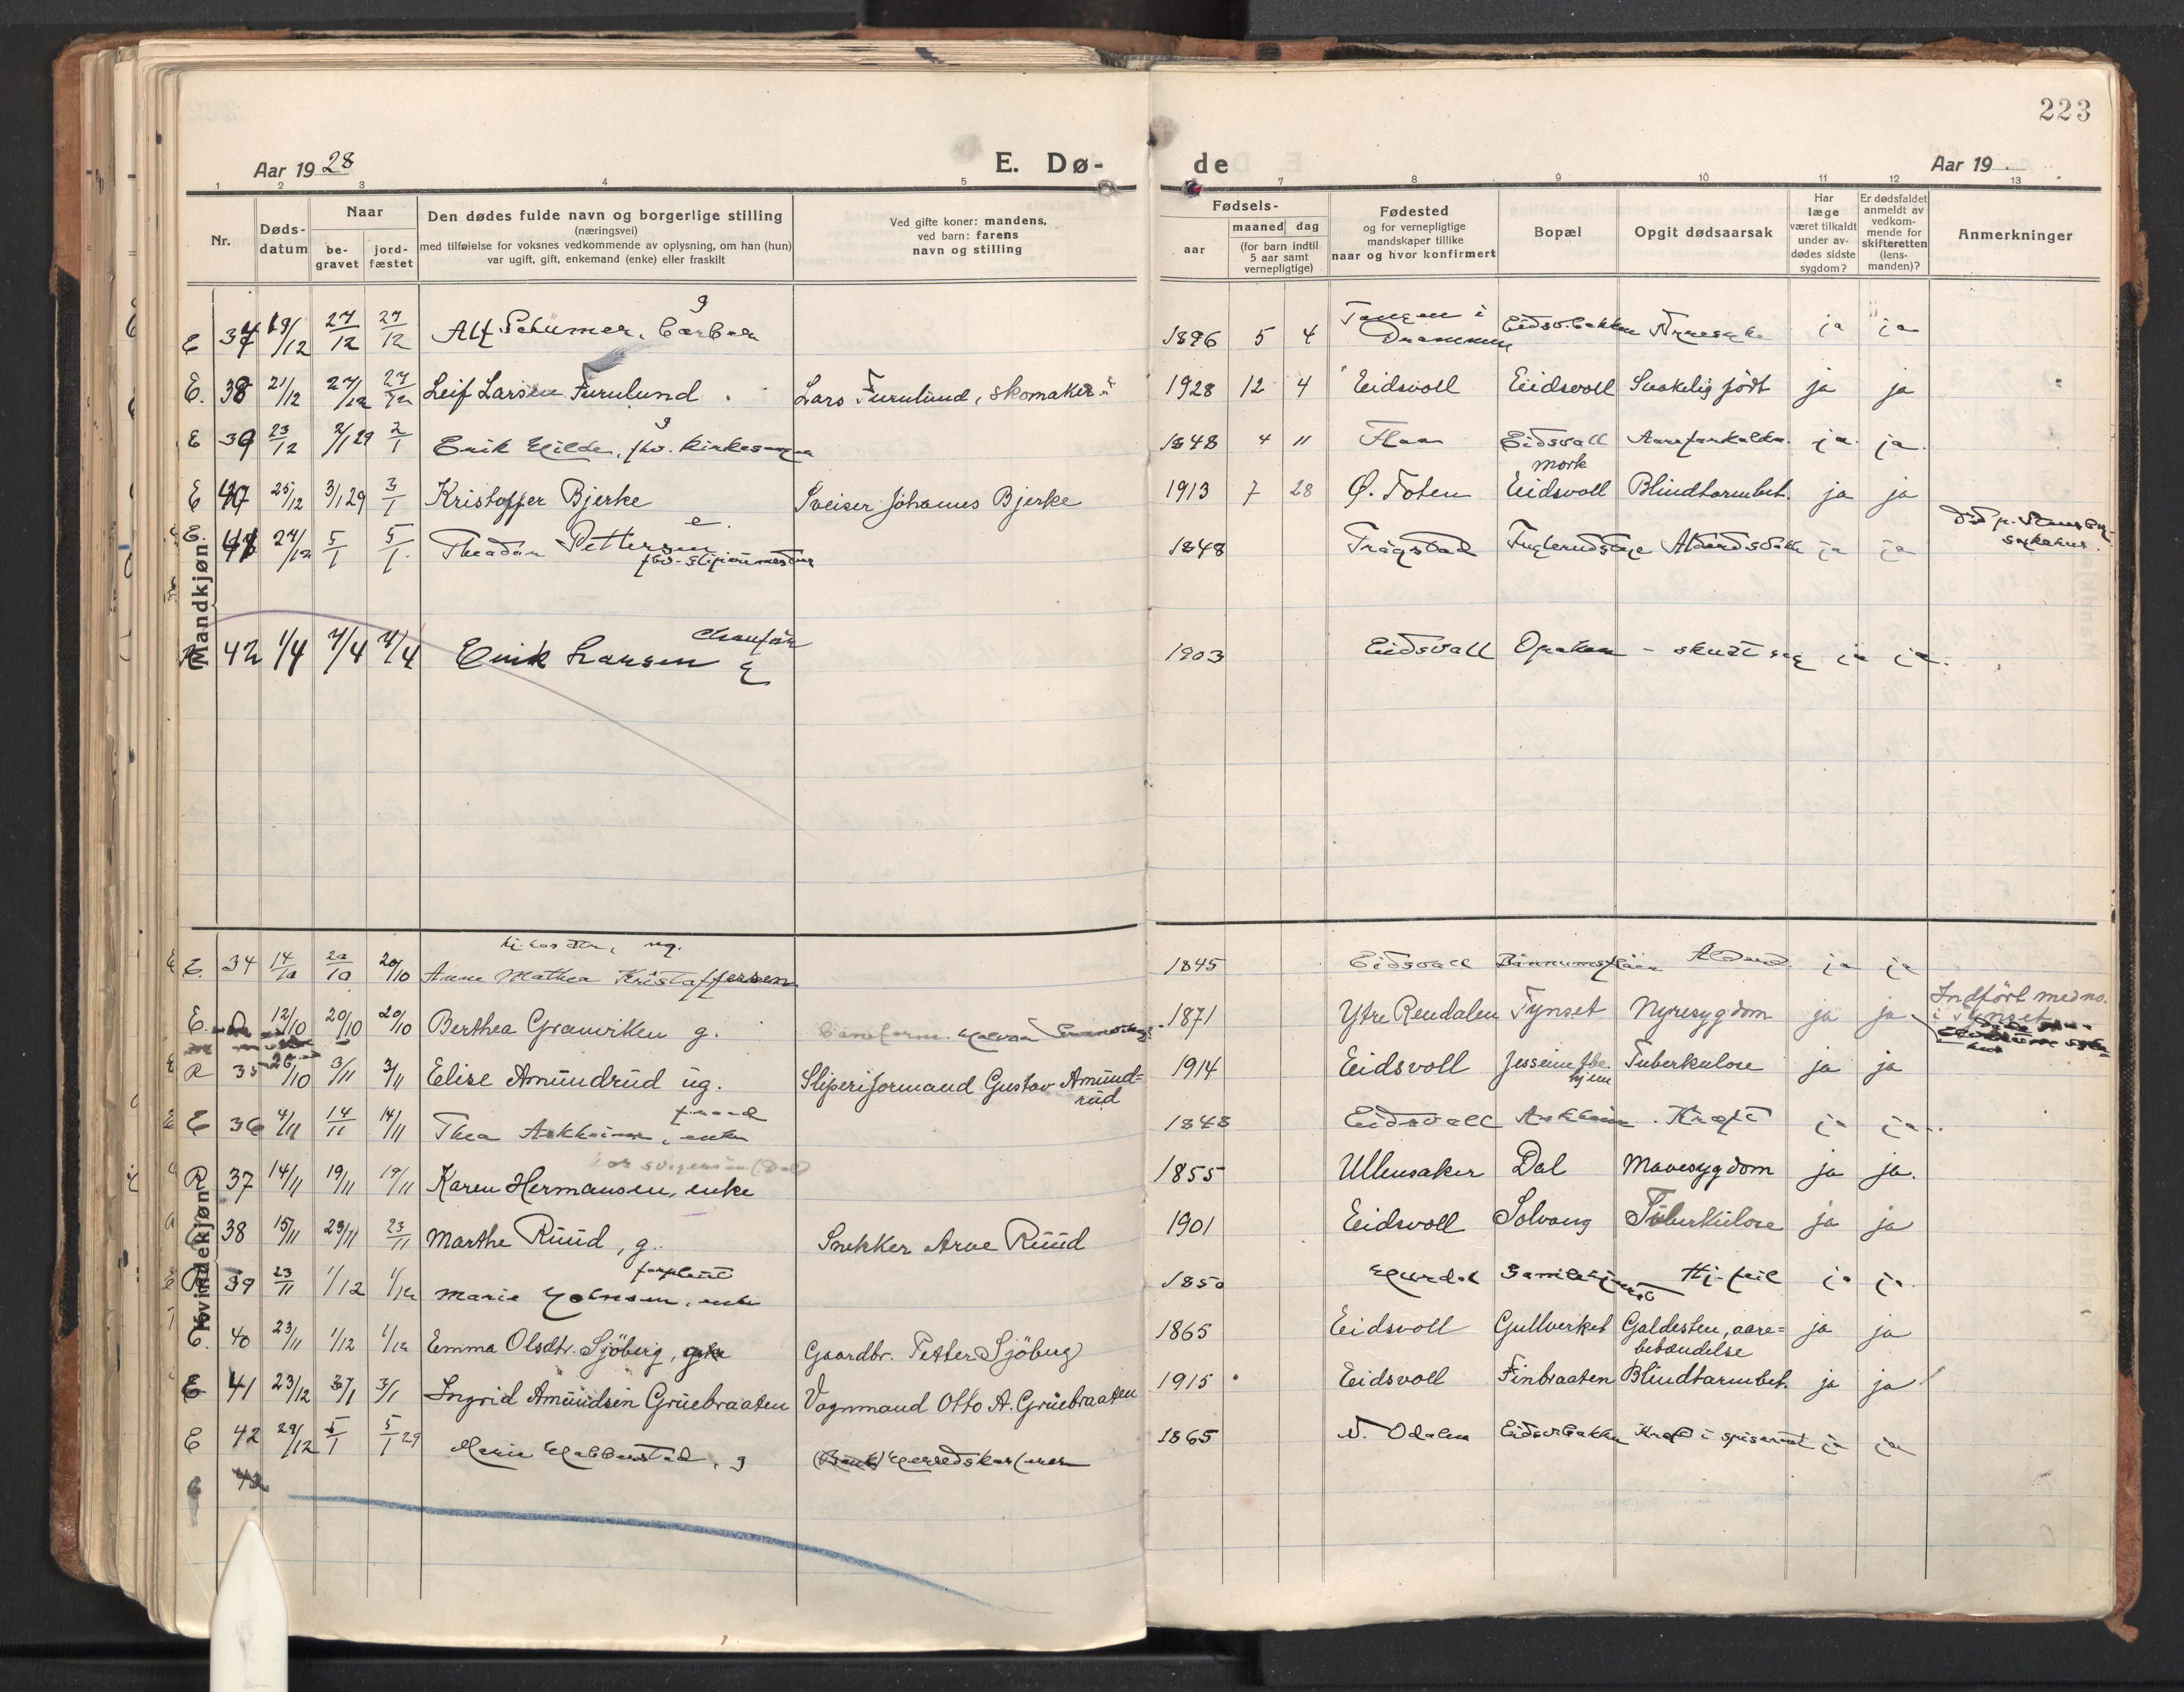 223
Aar 1928 E. Dø- de Aar 19
1 2 3 4 5 7 8 9 10 11 12 13
Nr.
Døds-
datum
Naar
be-
gravet
jord-
fæstet
Den dødes fulde navn og borgerlige stilling
(næringsvei)
med tilføielse for voksnes vedkommende av oplysning, om han (hun)
var ugift, gift, enkemand (enke) eller fraskilt
Ved gifte koner: mandens,
ved barn: farens
navn og stilling
Fødsels-
aar
maaned dag
(for barn indtil
5 aar samt
vernepligtige)
Fødested
og for vernepligtige
mandskaper tillike
naar og hvor konfirmert
Bopæl
Opgit dødsaarsak
Har
læge
været tilkaldt
under av-
dødes sidste
sygdom?
Er dødsfaldet
anmeldt av
vedkom-
mende for
skifteretten
(lens-
manden)?
Anmerkninger
Mandkjøn
E 37 19/12 27/12 27/12 Alf Schümer, barber g 1896 5 4 Tangen i Drammen Eidsv.bakken ja ja
E. 38 21/12 27/12 27/12 Leif Larsen Furulund Lars Furulund, skomaker 1928 12 4 Eidsvoll Eidsvoll Svakelig født ja ja
E 39 23/12 2/1 29 2/1 Erik Hilde, fhv. kirkesanger g 1848 4 11 Flaa Eidsvoll Aareforkalkn. ja ja
E 40 25/12 3/1 29 3/1 Kristoffer Bjerke Sveiser Johannes Bjerke 1913 7 28 Ø. Toten mork Eidsvoll Blindtarmbet. ja ja
E. 41 27/12 5/1 5/1 Theodor Pettersen e. fhv. sliperimester 1848 Trøgstad ja ja
42 1/4 7/4 7/4 Erik Larsen chaufør g 1903 Eidsvoll Opaker - skudt seg ja ja.
Kvindekjøn
E. 34 14/10 20/10 20/10 Anne Mathea Kristoffersen ug. 1845 Eidsvoll Alderd. ja ja
E. 12/10 20/10 20/10 Berthea Granviken g. 1871 Ytre Rendalen Tynset Nyresygdom ja ja Indført med no.
i Tynset
R 35 26/10 3/11 3/11 Elise Amundrud ug. Sliperiformand Gustav Amund=
rud 1914 Eidsvoll Jesseim tbc.
hjem Tuberkulose ja ja
E 36 4/11 14/11 14/11 Thea Askheim, enke 1848 Eidsvoll Askheim Kræft ja ja
R 37 14/11 19/11 19/11 Karen Hermansen, enke hos svigersøn (Dal) 1855 Ullensaker Dal Mavesygdom ja ja.
38 15/11 23/11 23/11 Marthe Ruud, g. Snekker Arve Ruud 1901 Eidsvoll Solvang Tuberkulose ja ja
R 39 23/11 1/12 1/12 Marie Johnsen, enke forpleiet 1850 Hurdal Gamlehjemmet Hj.feil ja ja
E. 40 23/11 1/12 1/12 Emma Olsdtr. Sjöberg, Gaardbr. Petter Sjöberg 1865 Eidsvoll Gullverket Galdesten, aare=
betændelse ja ja
E 41 23/12 3/1 3/1 Ingrid Amundsen Gruebraaten Vognmand Otto A. Gruebraaten 1915 Eidsvoll Finbraaten Blindtarmbet. ja ja
E 42 29/12 5/1 5/1 29 Marie Habberstad, g Herredskasserer 1865 N. Odalen Eidsv.bakken Kræft i spiserøret ja ja